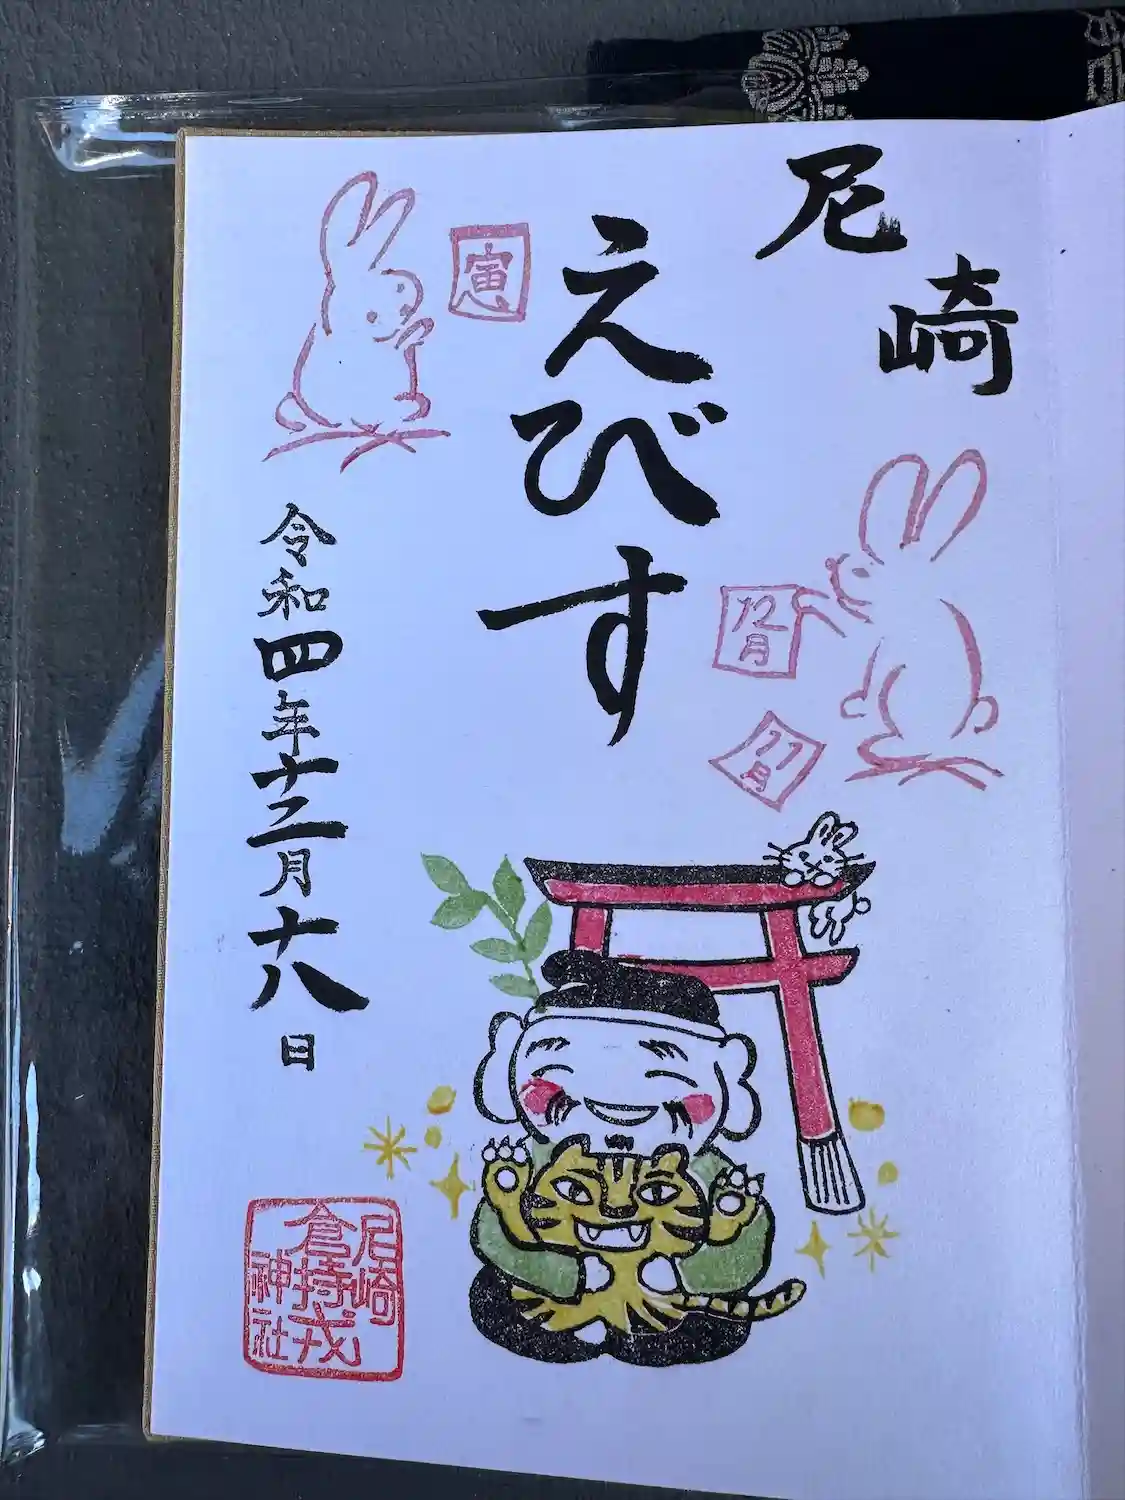 尼崎
えびす
寅
12月
11月
令和四年十二月十八日
尼崎
倉持戎
神社